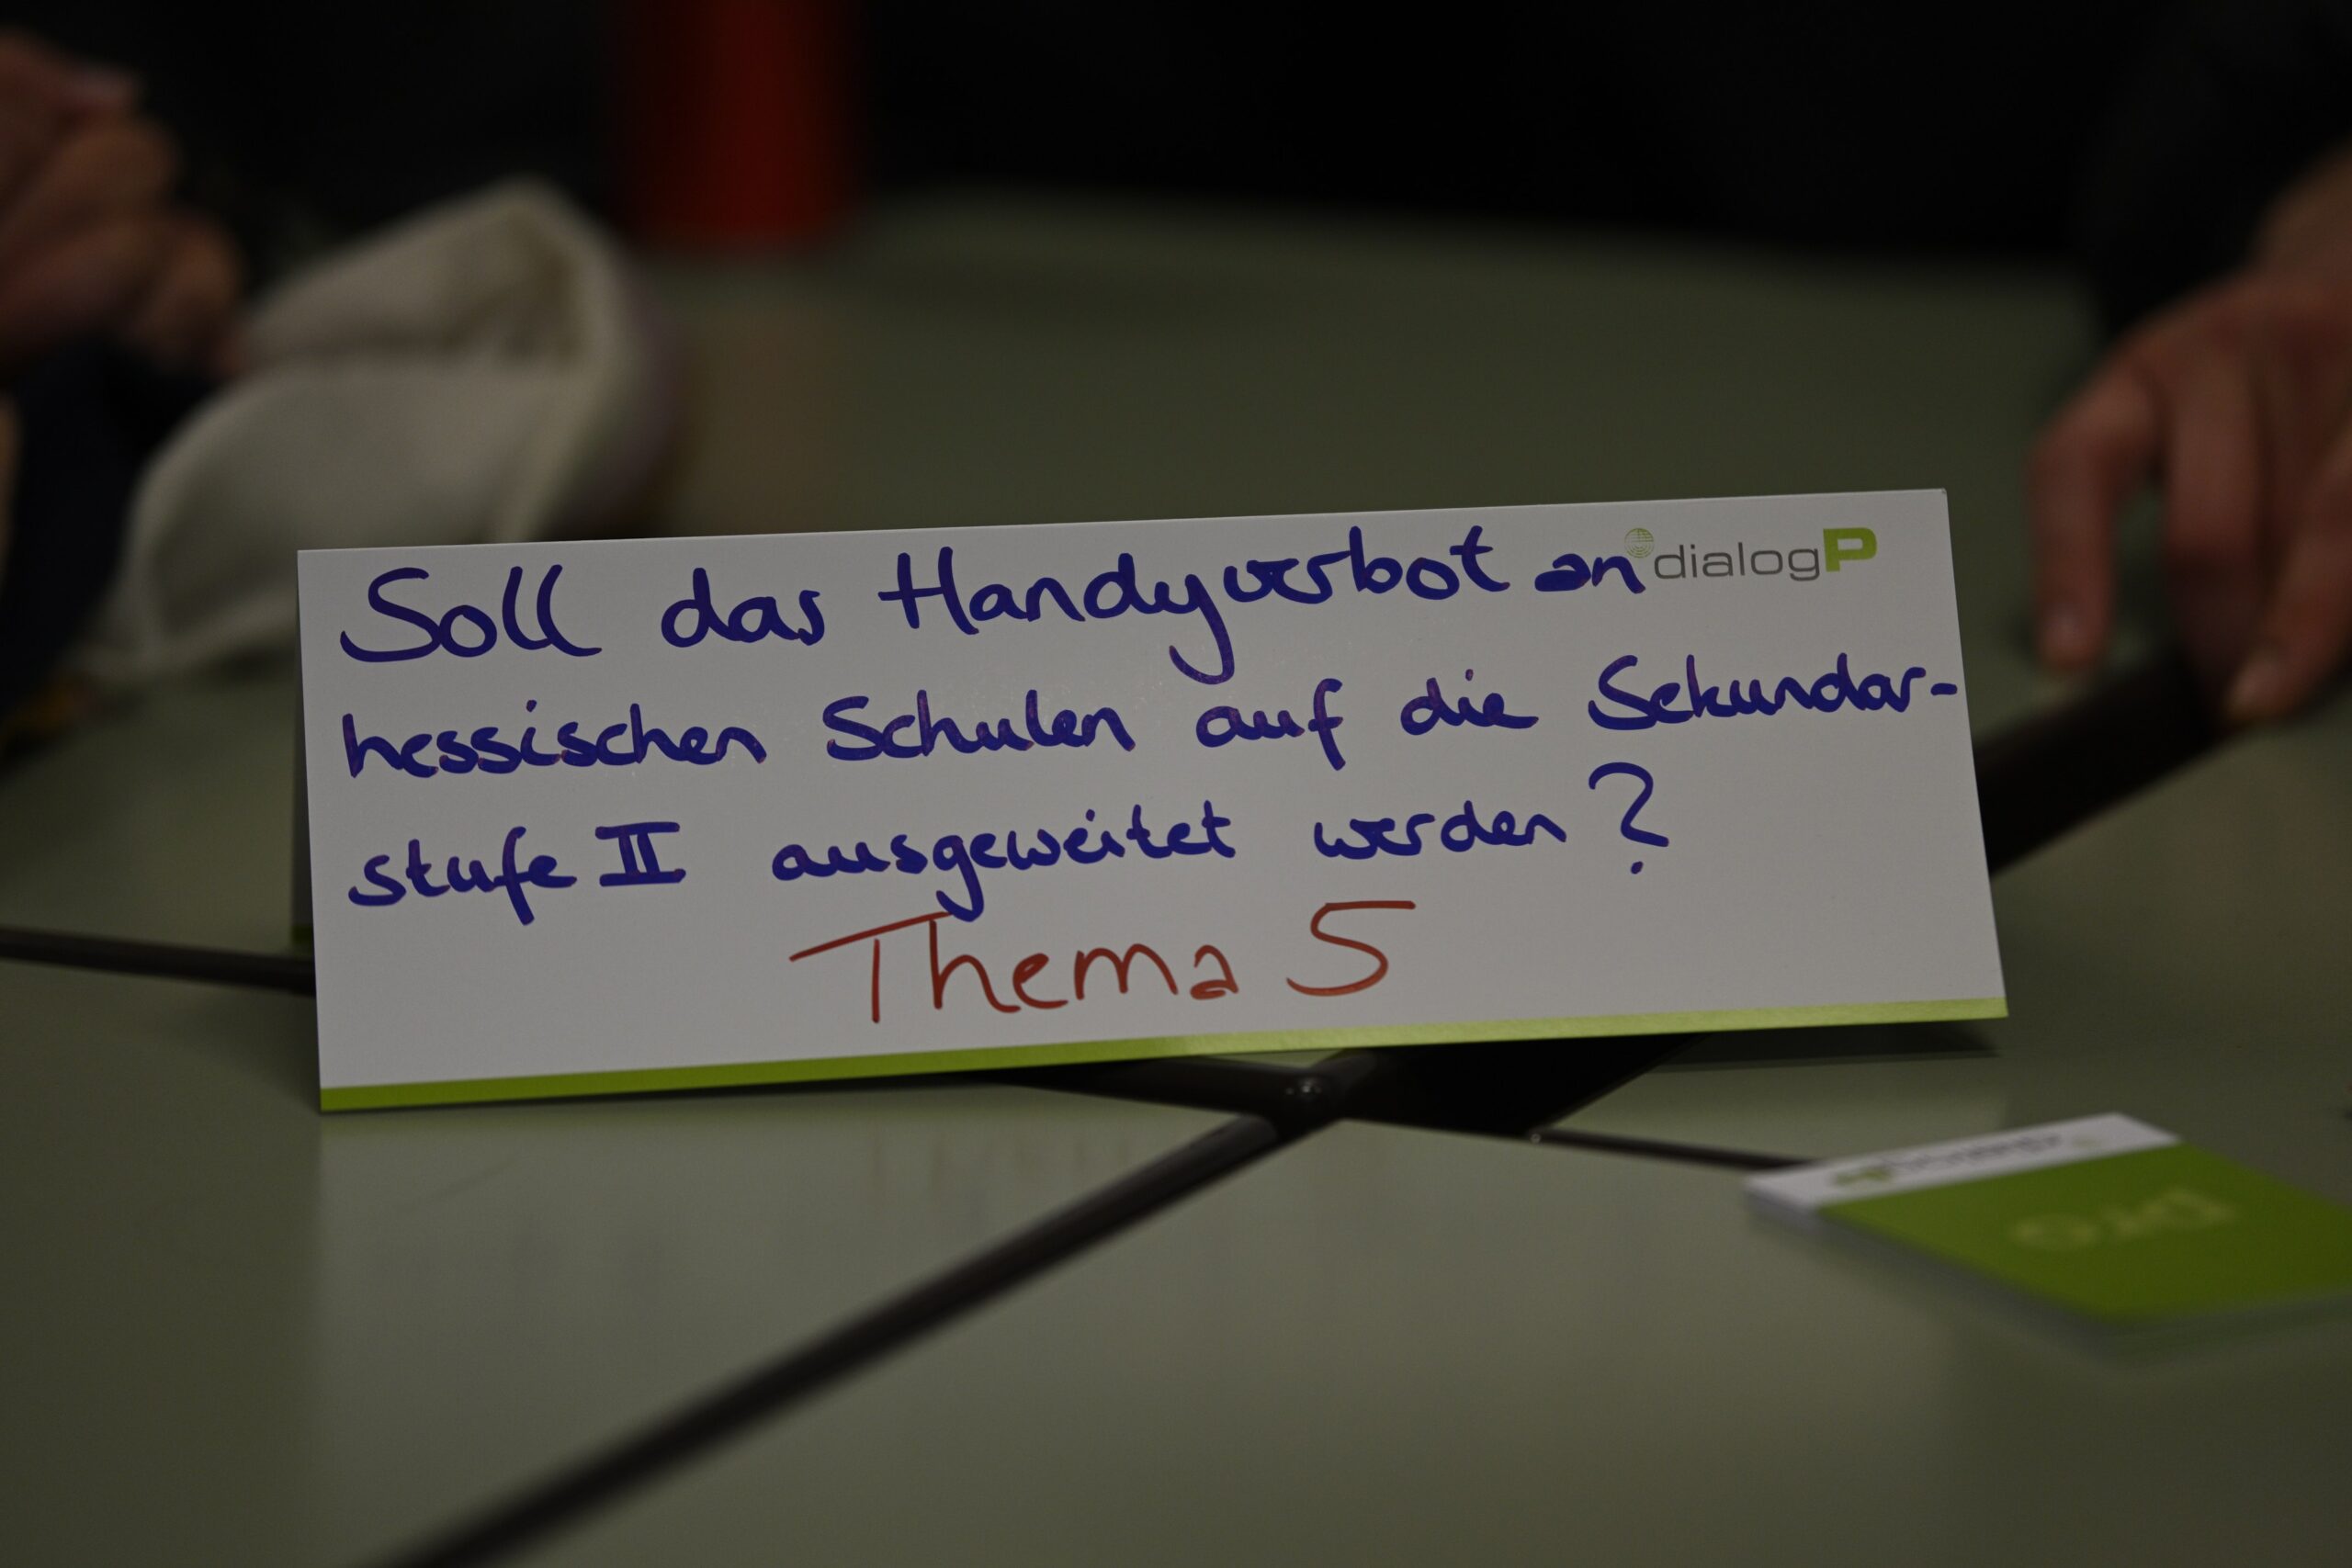 Soll das Handyverbot an
dialogP
hessischen Schulen auf die Sekundar-
stufe II ausgeweitet werden?
Thema 5